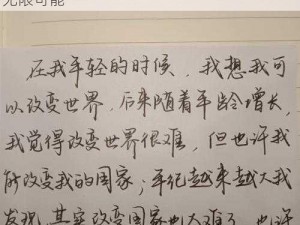 无限可能
在我年轻的时候，我想我可
以改变世界，后来随着年龄增长，
我觉得改变世界很难，但也许我
能改变我的国家；年纪越来越大我
发现，其实改变国家也太难了，也许